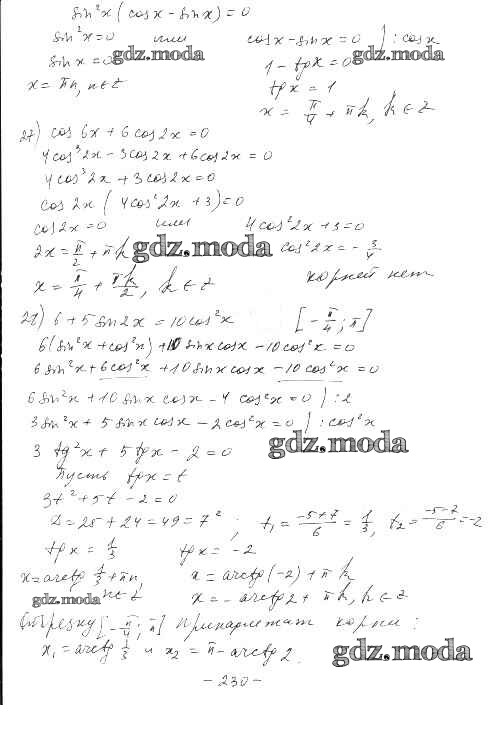 sin²x (cosx - sinx) = 0
sin²x = 0 или cosx - sinx = 0 | : cosx
gdz.moda
sin x = 0 1 - tgx = 0
x = πn, n∈Z tgx = 1
x = π/4 + πk, k∈Z
27) cos 6x + 6 cos 2x = 0
4cos³2x - 3cos2x + 6cos2x = 0
4cos³2x + 3cos2x = 0
cos 2x (4cos²2x + 3) = 0
cos2x = 0 или 4cos²2x + 3 = 0
2x = π/2 + πk gdz.moda cos²2x = - 3/4
x = π/4 + πk/2, k∈Z корней нет
28) 6 + 5 sin2x = 10cos²x [-π/4; π]
6(sin²x + cos²x) + 10 sinx cosx - 10cos²x = 0
6 sin²x + 6cos²x + 10sinx cosx - 10cos²x = 0
6sin²x + 10sinx cosx - 4cos²x = 0 | : 2
3sin²x + 5sinx cosx - 2cos²x = 0 | : cos²x
gdz.moda
3 tg²x + 5tgx - 2 = 0
Пусть tgx = t
3t² + 5t - 2 = 0
D = 25 + 24 = 49 = 7²; t₁ = (-5+7)/6 = 1/3, t₂ = (-5-7)/6 = -2
tgx = 1/3 tgx = -2
x = arctg 1/3 + πn, x = arctg(-2) + πk
gdz.moda n∈Z x = -arctg2 + πk, k∈Z
Отрезку [-π/4; π] принадлежат корни:
x₁ = arctg 1/3 и x₂ = π - arctg 2.
gdz.moda
- 230 -